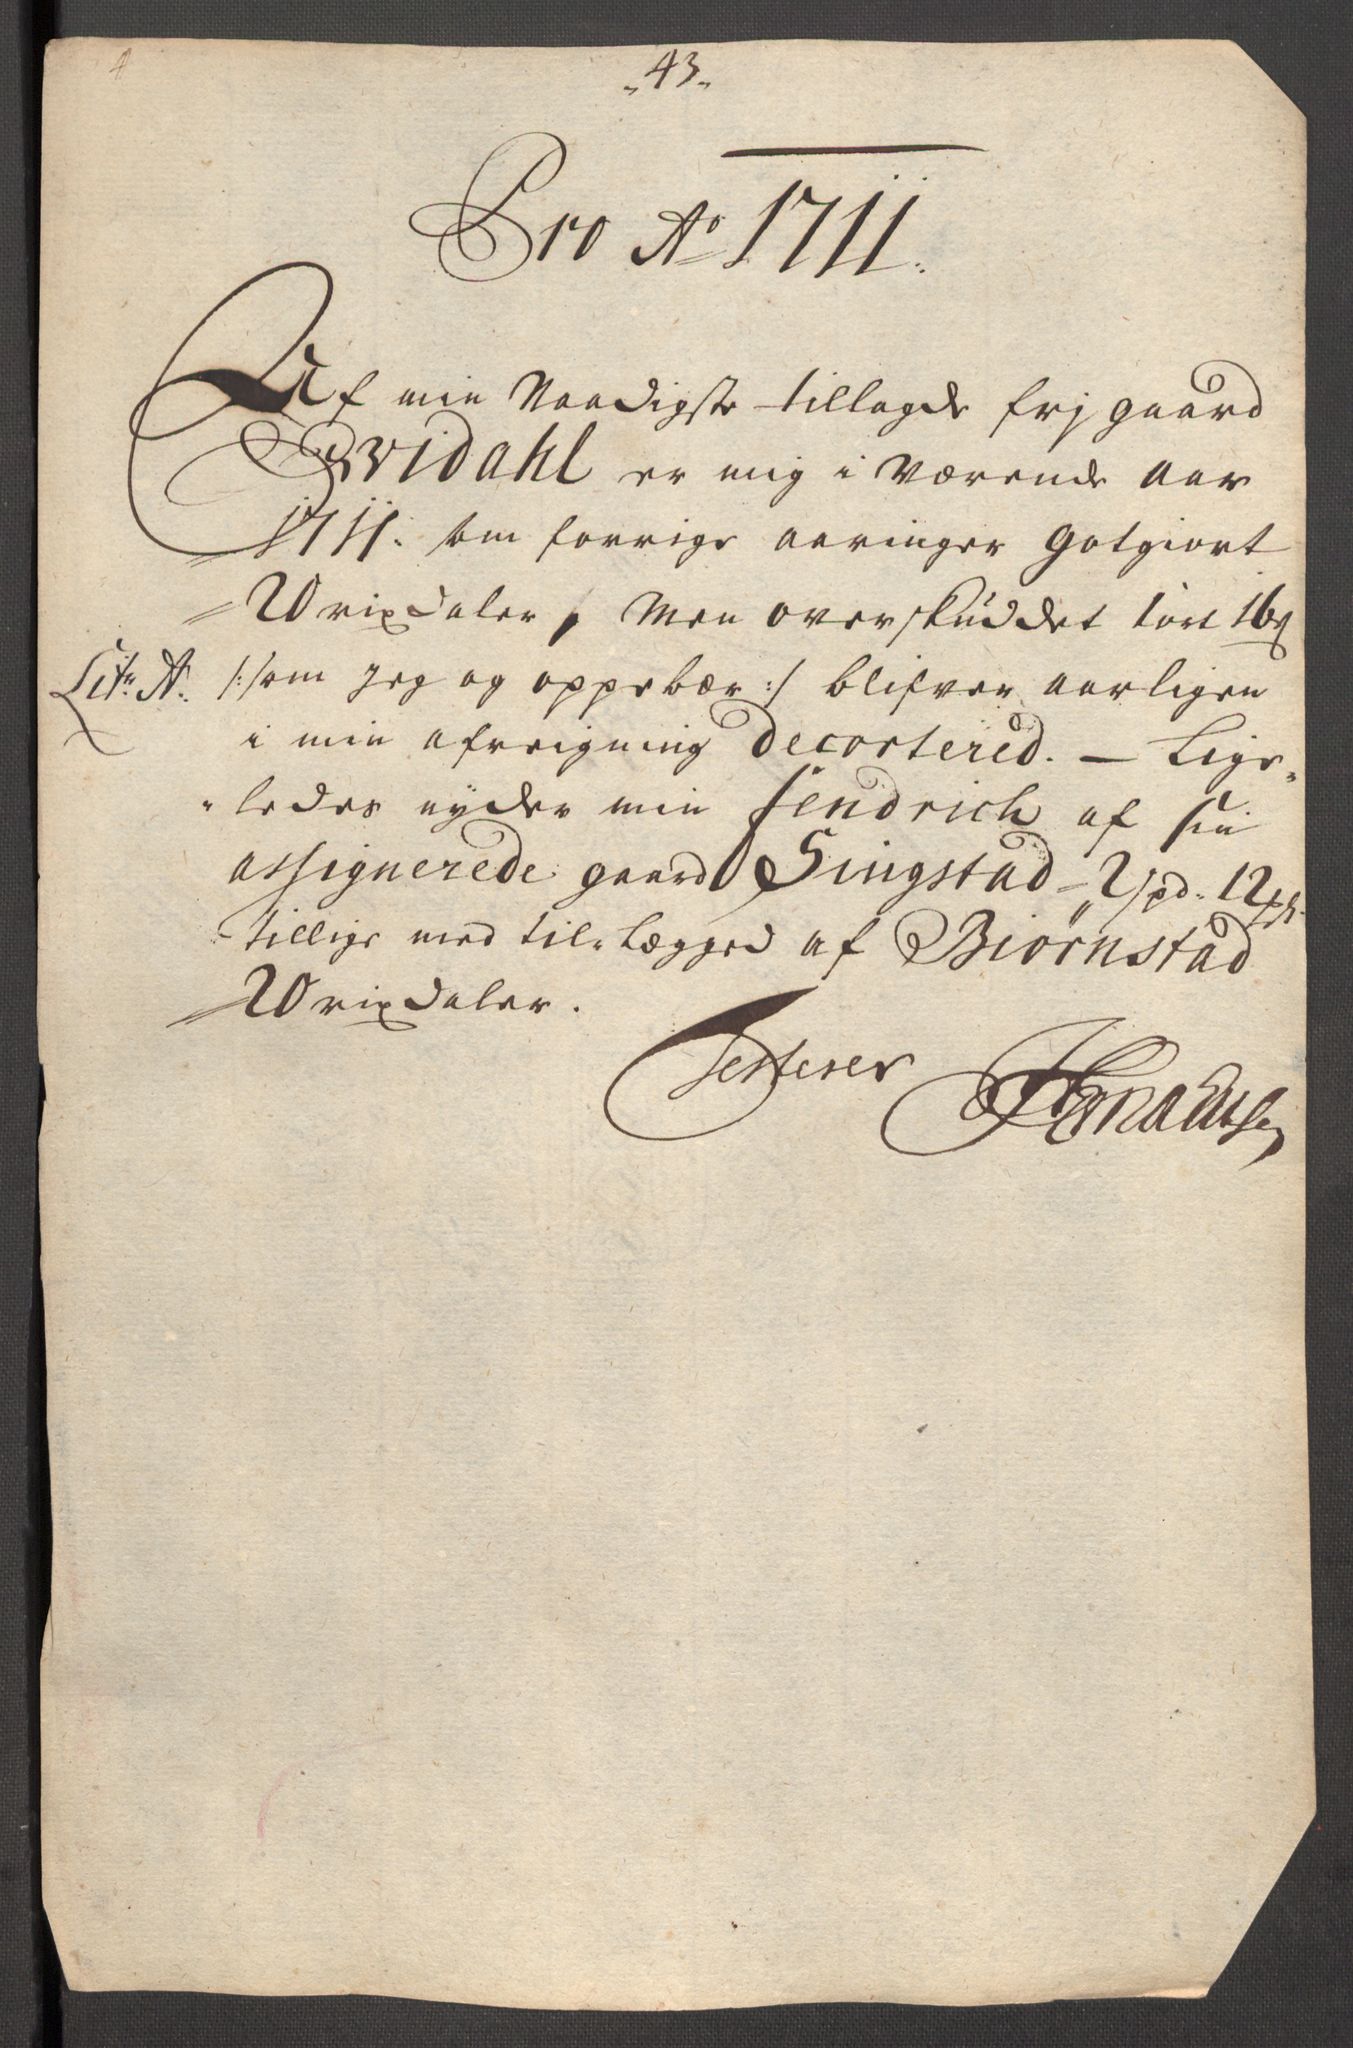 „43„
Pro Ao 1711.
Af min Naadigste tillagde frj gaard
Qvidahl er mig i Værende aar
1711. som forrige aaringer gotgiort
20 rixdaler, Men overskuddet 16
Litr A. /: som jeg og oppebær :/ blifver aarligen
i min afreigning decortered. — Lige-
ledes nyder min fendrich af sin
assignerede gaard Singstad 2 spd. 12
tillige med til-Lægged af Biörnstad
20 rixdaler.
Testerer